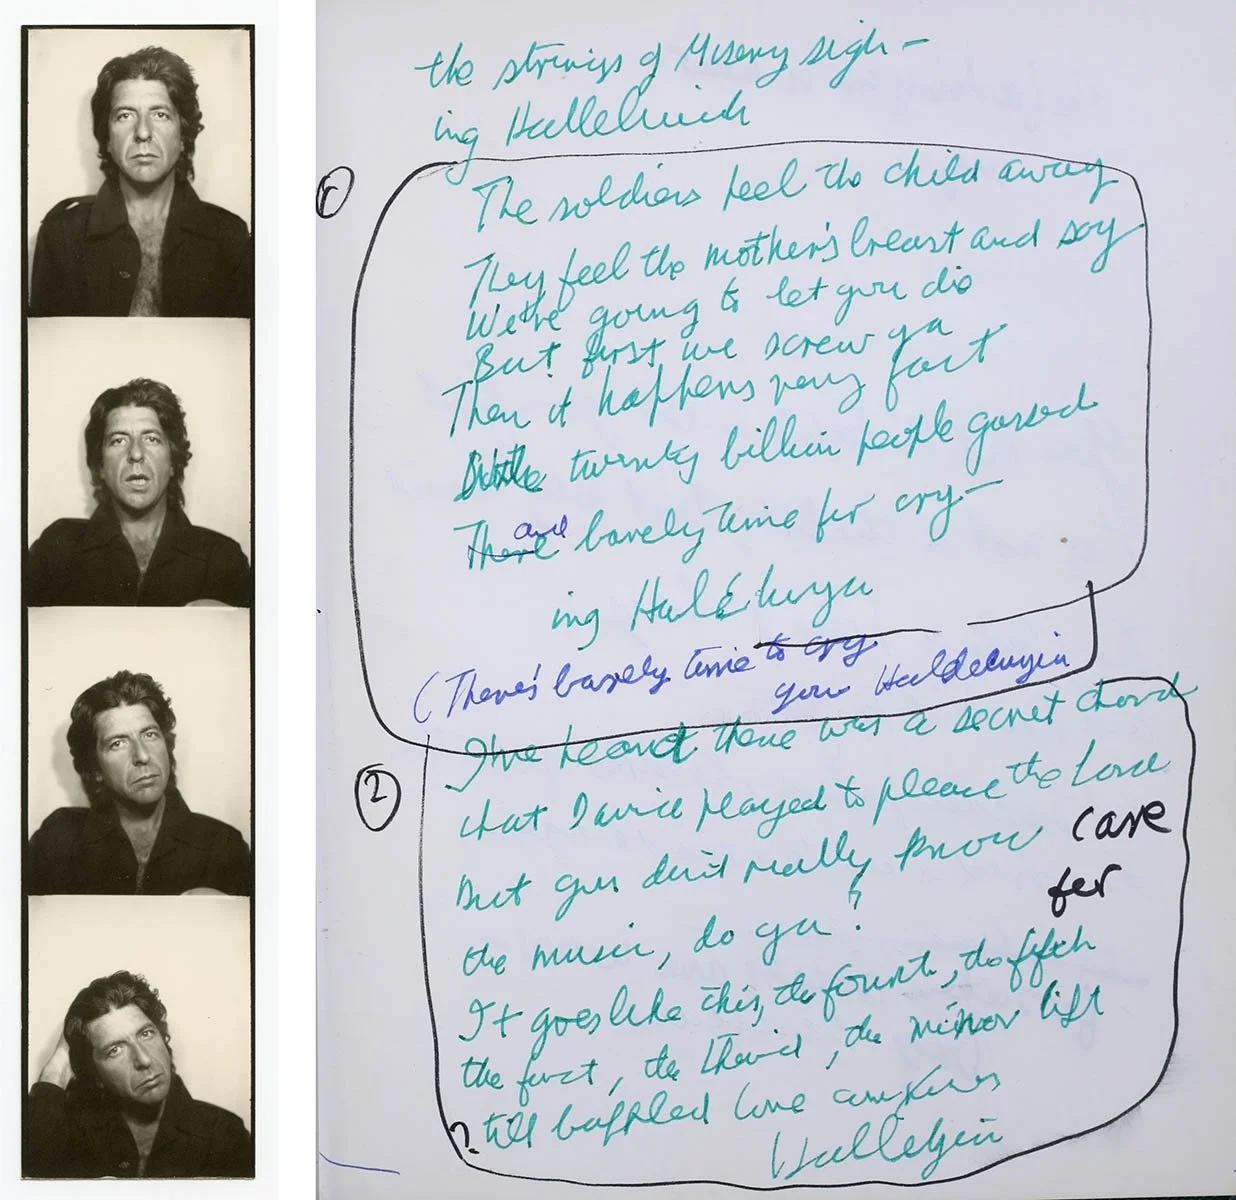 the strings of Misery sigh –
ing Hallelujah
1
The soldiers peel the child away
They feel the mother's breast and say
We're going to let you die
But first we screw ya
Then it happens very fast
twenty billion people gassed
There and barely time for cry –
ing Haleluya
(There's barely time to cry
your Halleluyia
2
I've heard there was a secret chord
that David played to please the Lord
But you don't really know care
for
the music, do ya?
It goes like this, the fourth, the fifth
the first, the third, the minor lift
? till baffled love